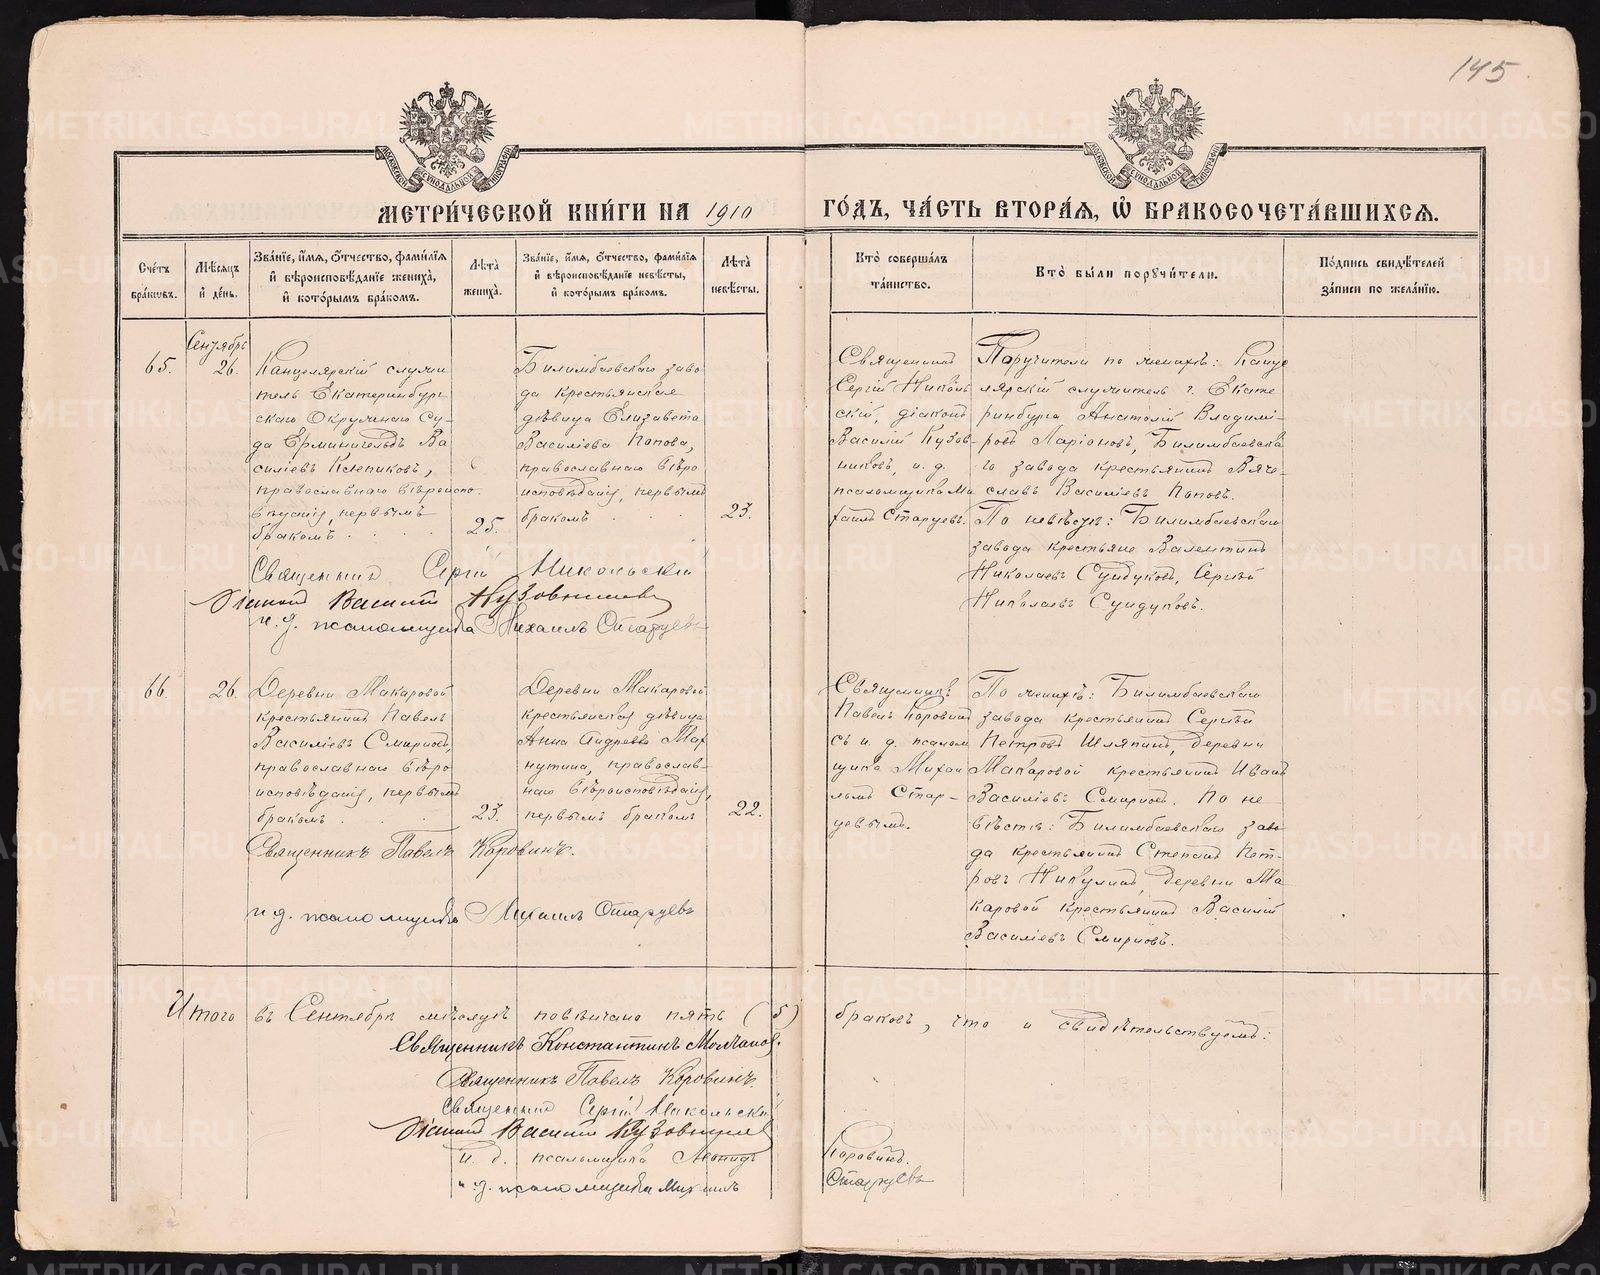 145
МЕТРИ́ЧЕСКОЙ КНИ́ГИ НА 1910 ГО́ДЪ, ЧА́СТЬ ВТОРА́Ѧ, Ѽ БРАКОСОЧЕТА́ВШИХСѦ.
Сче́тъ бра́кѡвъ.
Мѣ́сѧцъ и҆ де́нь.
Зва́нїе, и҆́мѧ, ѻ҆́тчество, фамилїѧ и҆ вѣроисповѣ́данїе жениха̀, и҆ кото́рымъ бра́комъ.
Лѣ́та жениха̀.
Зва́нїе, и҆́мѧ, ѻ҆́тчество, фами́лїѧ и҆ вѣроисповѣ́данїе невѣ́сты, и҆ кото́рымъ бра́комъ.
Лѣ́та невѣ́сты.
Кто̀ соверша́лъ та́инство.
Кто̀ бы́ли порꙋчи́тели.
По́дпись свидѣ́телей за́писи по жела́нїю.
Сентябрь
65.
26.
Канцелярскій служи
тель Екатеринбург
скаго Окружнаго Су-
да Ерминигельдъ Ва
силіевъ Клепиковъ,
православнаго вѣроиспо-
вѣданія, первымъ
бракомъ
25.
Билимбаевскаго заво
да крестьянская
дѣвица Елизавета
Василіева Попова,
православнаго вѣро
исповѣданія, первымъ
бракомъ
23.
Священникъ
Сергій Николь
скій, діаконъ
Василій Кузов-
никовъ, и. д.
псаломщика Ми
хаилъ Старцевъ.
Поручители по женихѣ: Канце
лярскій служитель г. Екате
ринбурга Анатолій Владимі-
ровъ Ларіоновъ, Билимбаевска
го завода крестьянинъ Вяче-
славъ Василіевъ Поповъ.
По невѣстѣ: Билимбаевскаго
завода крестьяне Валентинъ
Николаевъ Сундуковъ, Сергѣй
Николаевъ Сундуковъ.
Священникъ Сергій Никольскій
Діаконъ Василій Кузовниковъ
и. д. псаломщика Михаилъ Старцевъ
66.
26.
Деревни Макаровой
крестьянинъ Павелъ
Василіевъ Смирновъ,
православнаго вѣро
исповѣданія, первымъ
бракомъ
23.
Деревни Макаровой
крестьянская дѣвица
Анна Андреева Мах
нутина, православ-
наго вѣроисповѣданія,
первымъ бракомъ
22.
Священникъ
Павелъ Коровинъ
съ и. д. псалом
щика Михаи
ломъ Стар-
цевымъ.
По женихѣ: Билимбаевскаго
завода крестьянинъ Сергѣй
Петровъ Шляпинъ, деревни
Макаровой крестьянинъ Иванъ
Василіевъ Смирновъ. По не-
вѣстѣ: Билимбаевскаго заво
да крестьянинъ Степанъ Пет-
ровъ Никулинъ, деревни Ма
каровой крестьянинъ Василій
Василіевъ Смирновъ.
Священникъ Павелъ Коровинъ.
и д. псаломщика Михаилъ Старцевъ
Итого въ Сентябрѣ мѣсяцѣ повѣнчано пять (5) браковъ, что и свидѣтельствуемъ:
Священникъ Константинъ Молчановъ.
Священникъ Павелъ Коровинъ.
Священникъ Сергій Никольскій
Діаконъ Василій Кузовниковъ
И. д. псаломщика Леонидъ Коровинъ.
и. д. псаломщика Михаилъ Старцевъ